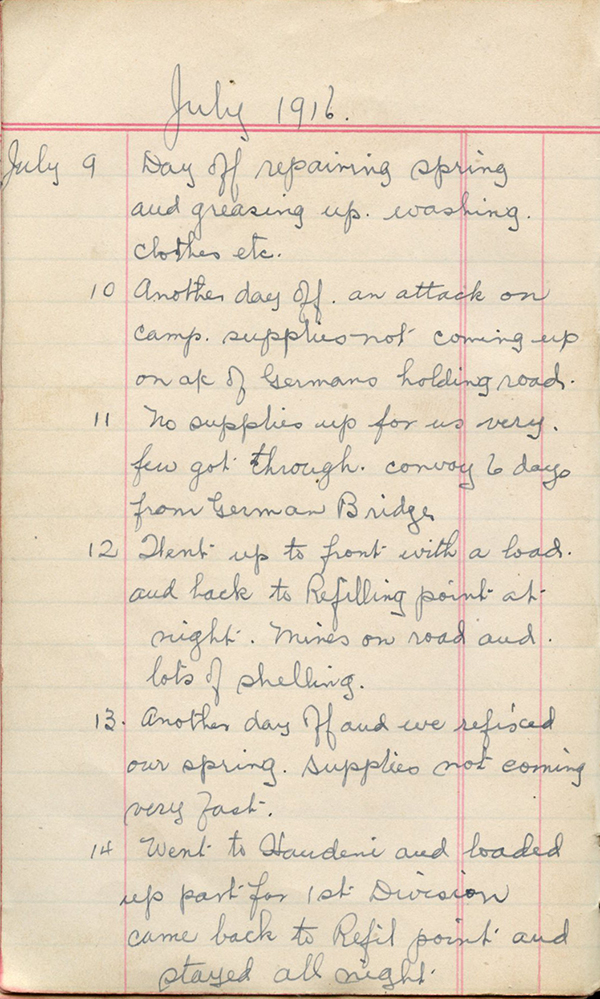 July 1916.
July 9 Day off repairing spring
and greasing up. washing.
clothes etc.
10 Another day off. an attack on
camp. supplies not coming up
on a/c of Germans holding road.
11 No supplies up for us very.
few got through. convoy 6 days
from German Bridge
12 Went up to front with a load.
and back to Refilling point at
night. Mines on road and.
lots of shelling.
13. Another day off and we refixed
our spring. Supplies not coming
very fast.
14 Went to Handeni and loaded
up part for 1st Division
came back to Refil point and
stayed all night.